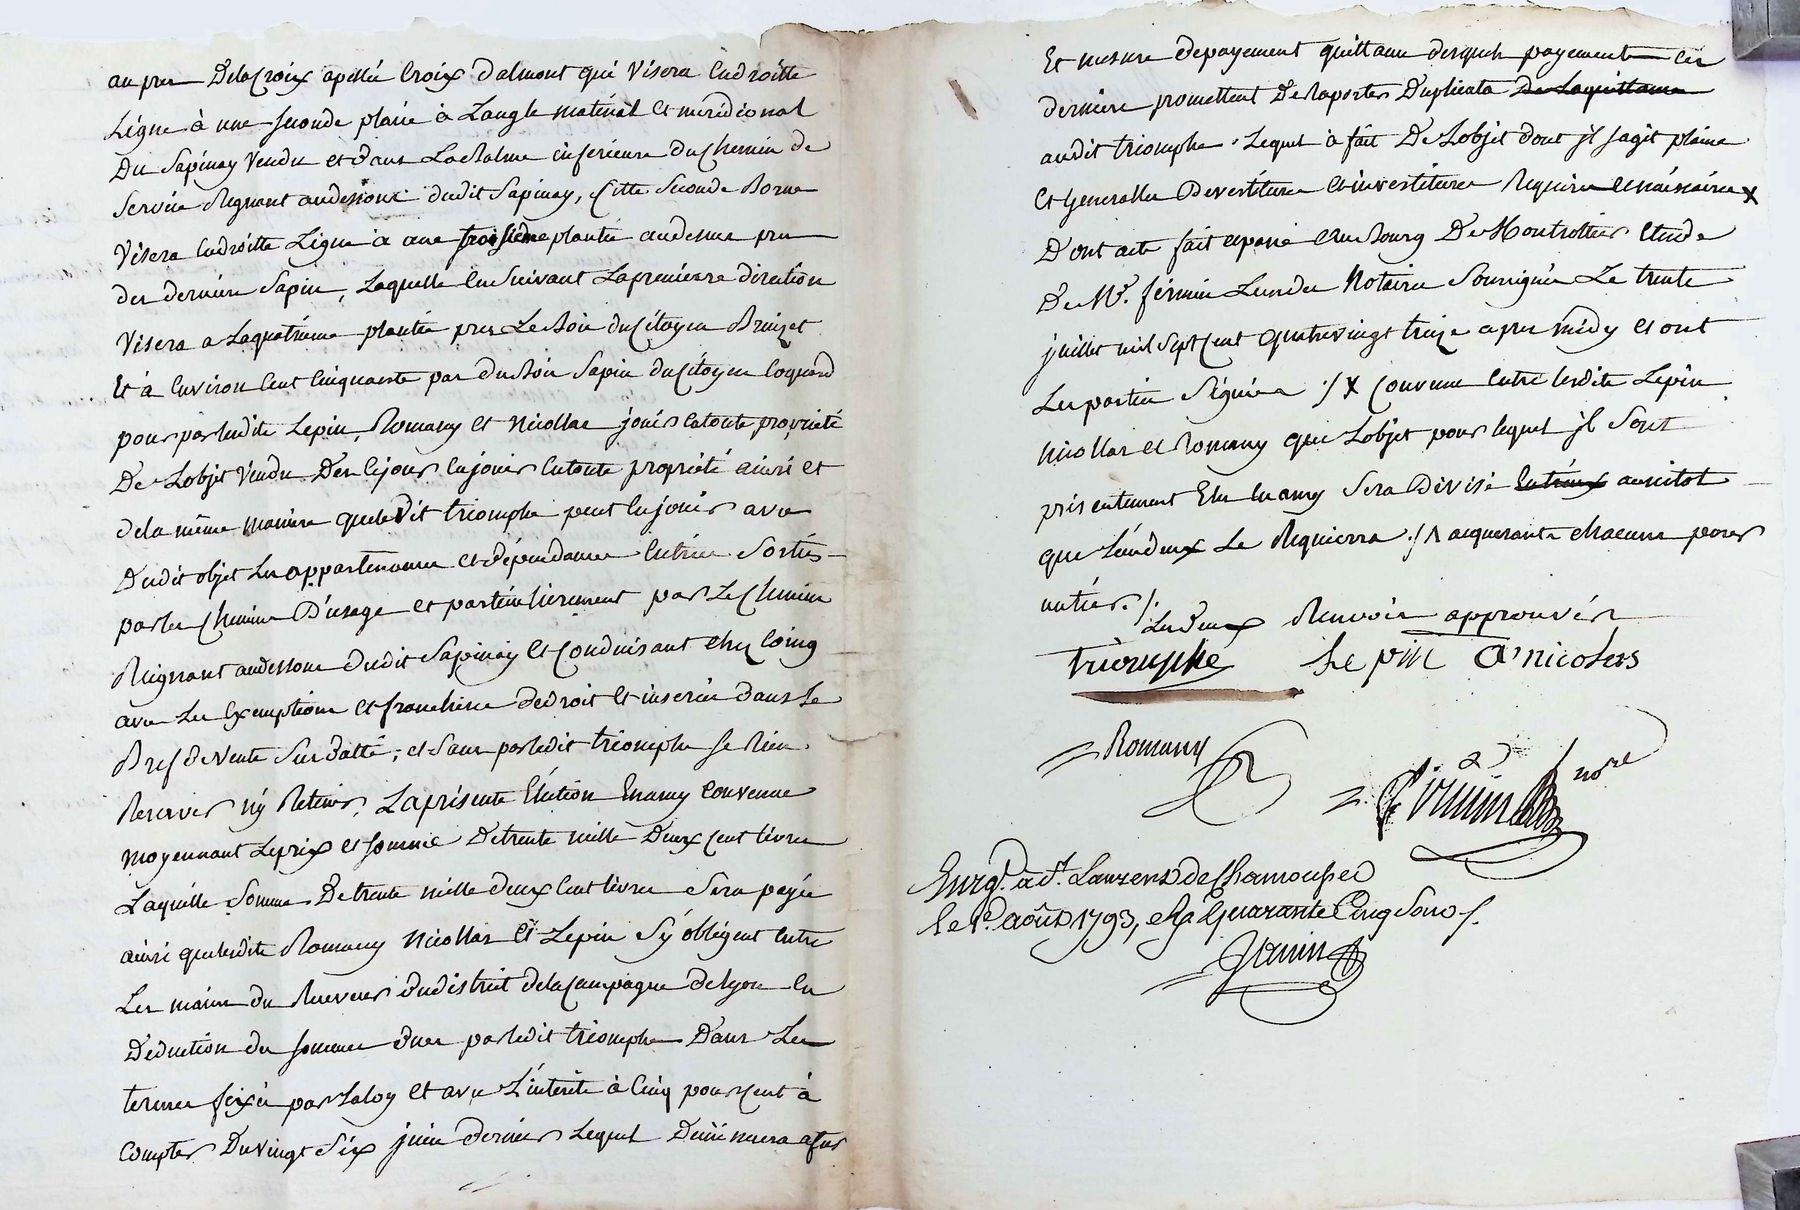 au pres Delacroix apellée Croix Dalmont qui Visera Endroitte
Ligne à une seconde plaié à Langle matinal Et méridional
Du Sapinay Vendu et dans La Balme inferieure du Chemin de
Servie Regnant audessous dudit Sapinay, Cette Seconde Borne
Visera Endroitte Ligne a une troisième plantée audessus pres
des derniers Sapins, Laquelle En Suivant Lapremierre diration
Visera a Laquatrieme plantée pres Le Bois du Citoyen Bruizet
Et à Environ Cent Cinquante pas du Bois Sapin du Citoyen Coquard
pour par lesdits Lepin, Romany Et Nicollas jouir Entoute propriété
De Lobjet Vendu Des Cejour Enjouir Entoute propriété ainsi et
dela même maniere que ledit triomphe peut Enjouir avec
Dudit objet Les appartenances et dépendances Entrées Sorties
par les Chemins D'usage et particulierement par Le Chemin
Reignant audessous dudit Sapinay Et Conduisant Chez Coing
avec Les Exemptions Et franchises dedroit Et inserées dans Le
Bref de Vente Sus datté; et Sans par ledit triomphe Se Rien
Reserver ny Retenir, La présente Election Enamy Convenue
moyennant Leprix et Somme Detrente mille Deux Cent livres
Laquelle Somme De trente mille deux Cent livres Sera payée
ainsi que lesdits Romany Nicollas Et Lepin S'y obligent Entre
Les mains du Receveur du district dela Campagne de Lyon En
Déduction des Sommes dues par ledit triomphe Dans Les
termes fixés par La loy Et avec L'interite à Cinq pour Cent à
Compter Du vingt Six juin dernier Lequel Diminuera a fur
Et mesure depayement quittance desquels payements Ces
derniers promettent De Raporter Duplicata De Laquittance
audit triomphe. Lequel à fait De Lobjet dont il Sagit pleine
Et Generalles Devestitures Et investitures Requises Et nécessaires X
Dont acte fait et passé au Bourg De Montrottier Etude
De Me. fermin Notaire Soussigné Le trente
juillet mil Sept Cent quatre vingt treize apres midy Et ont
Les parties Signées ./ X Convenu Entre lesdits Lepin
nicollas et Romany que Lobjet pour lequel il Sont
présentement Elu En amy Sera Divisé Entr'eux aussitot
que L'un deux Le Requierra ./ acquerants chacuns pour
un tiers ./.
Les Deux Renvois approuvés
triomphe Le pin a nicolas
Romany
nore
Enregt. à St. Laurent de Chamousset
le 1er. août 1793, Reçu Quarante Cinq Sous.